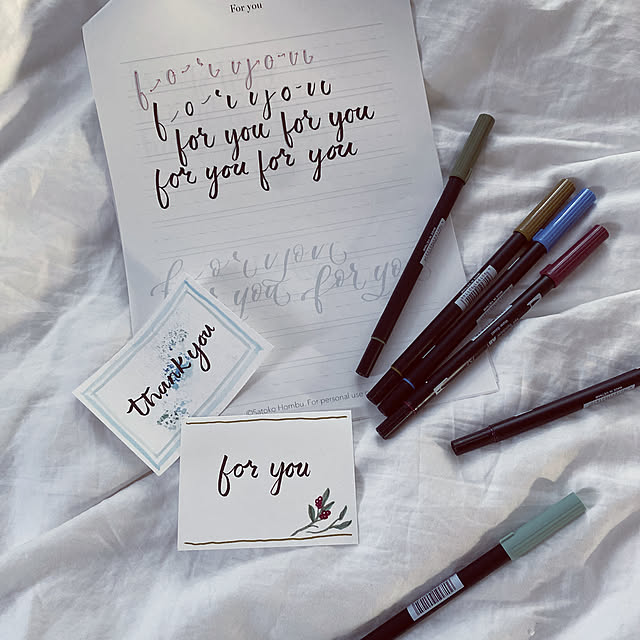 For you
f o r y o u
f o r y o u
for you for you
for you for you
f o r you
for you for you
©Satoko Hombu. For personal use
thank you
for you